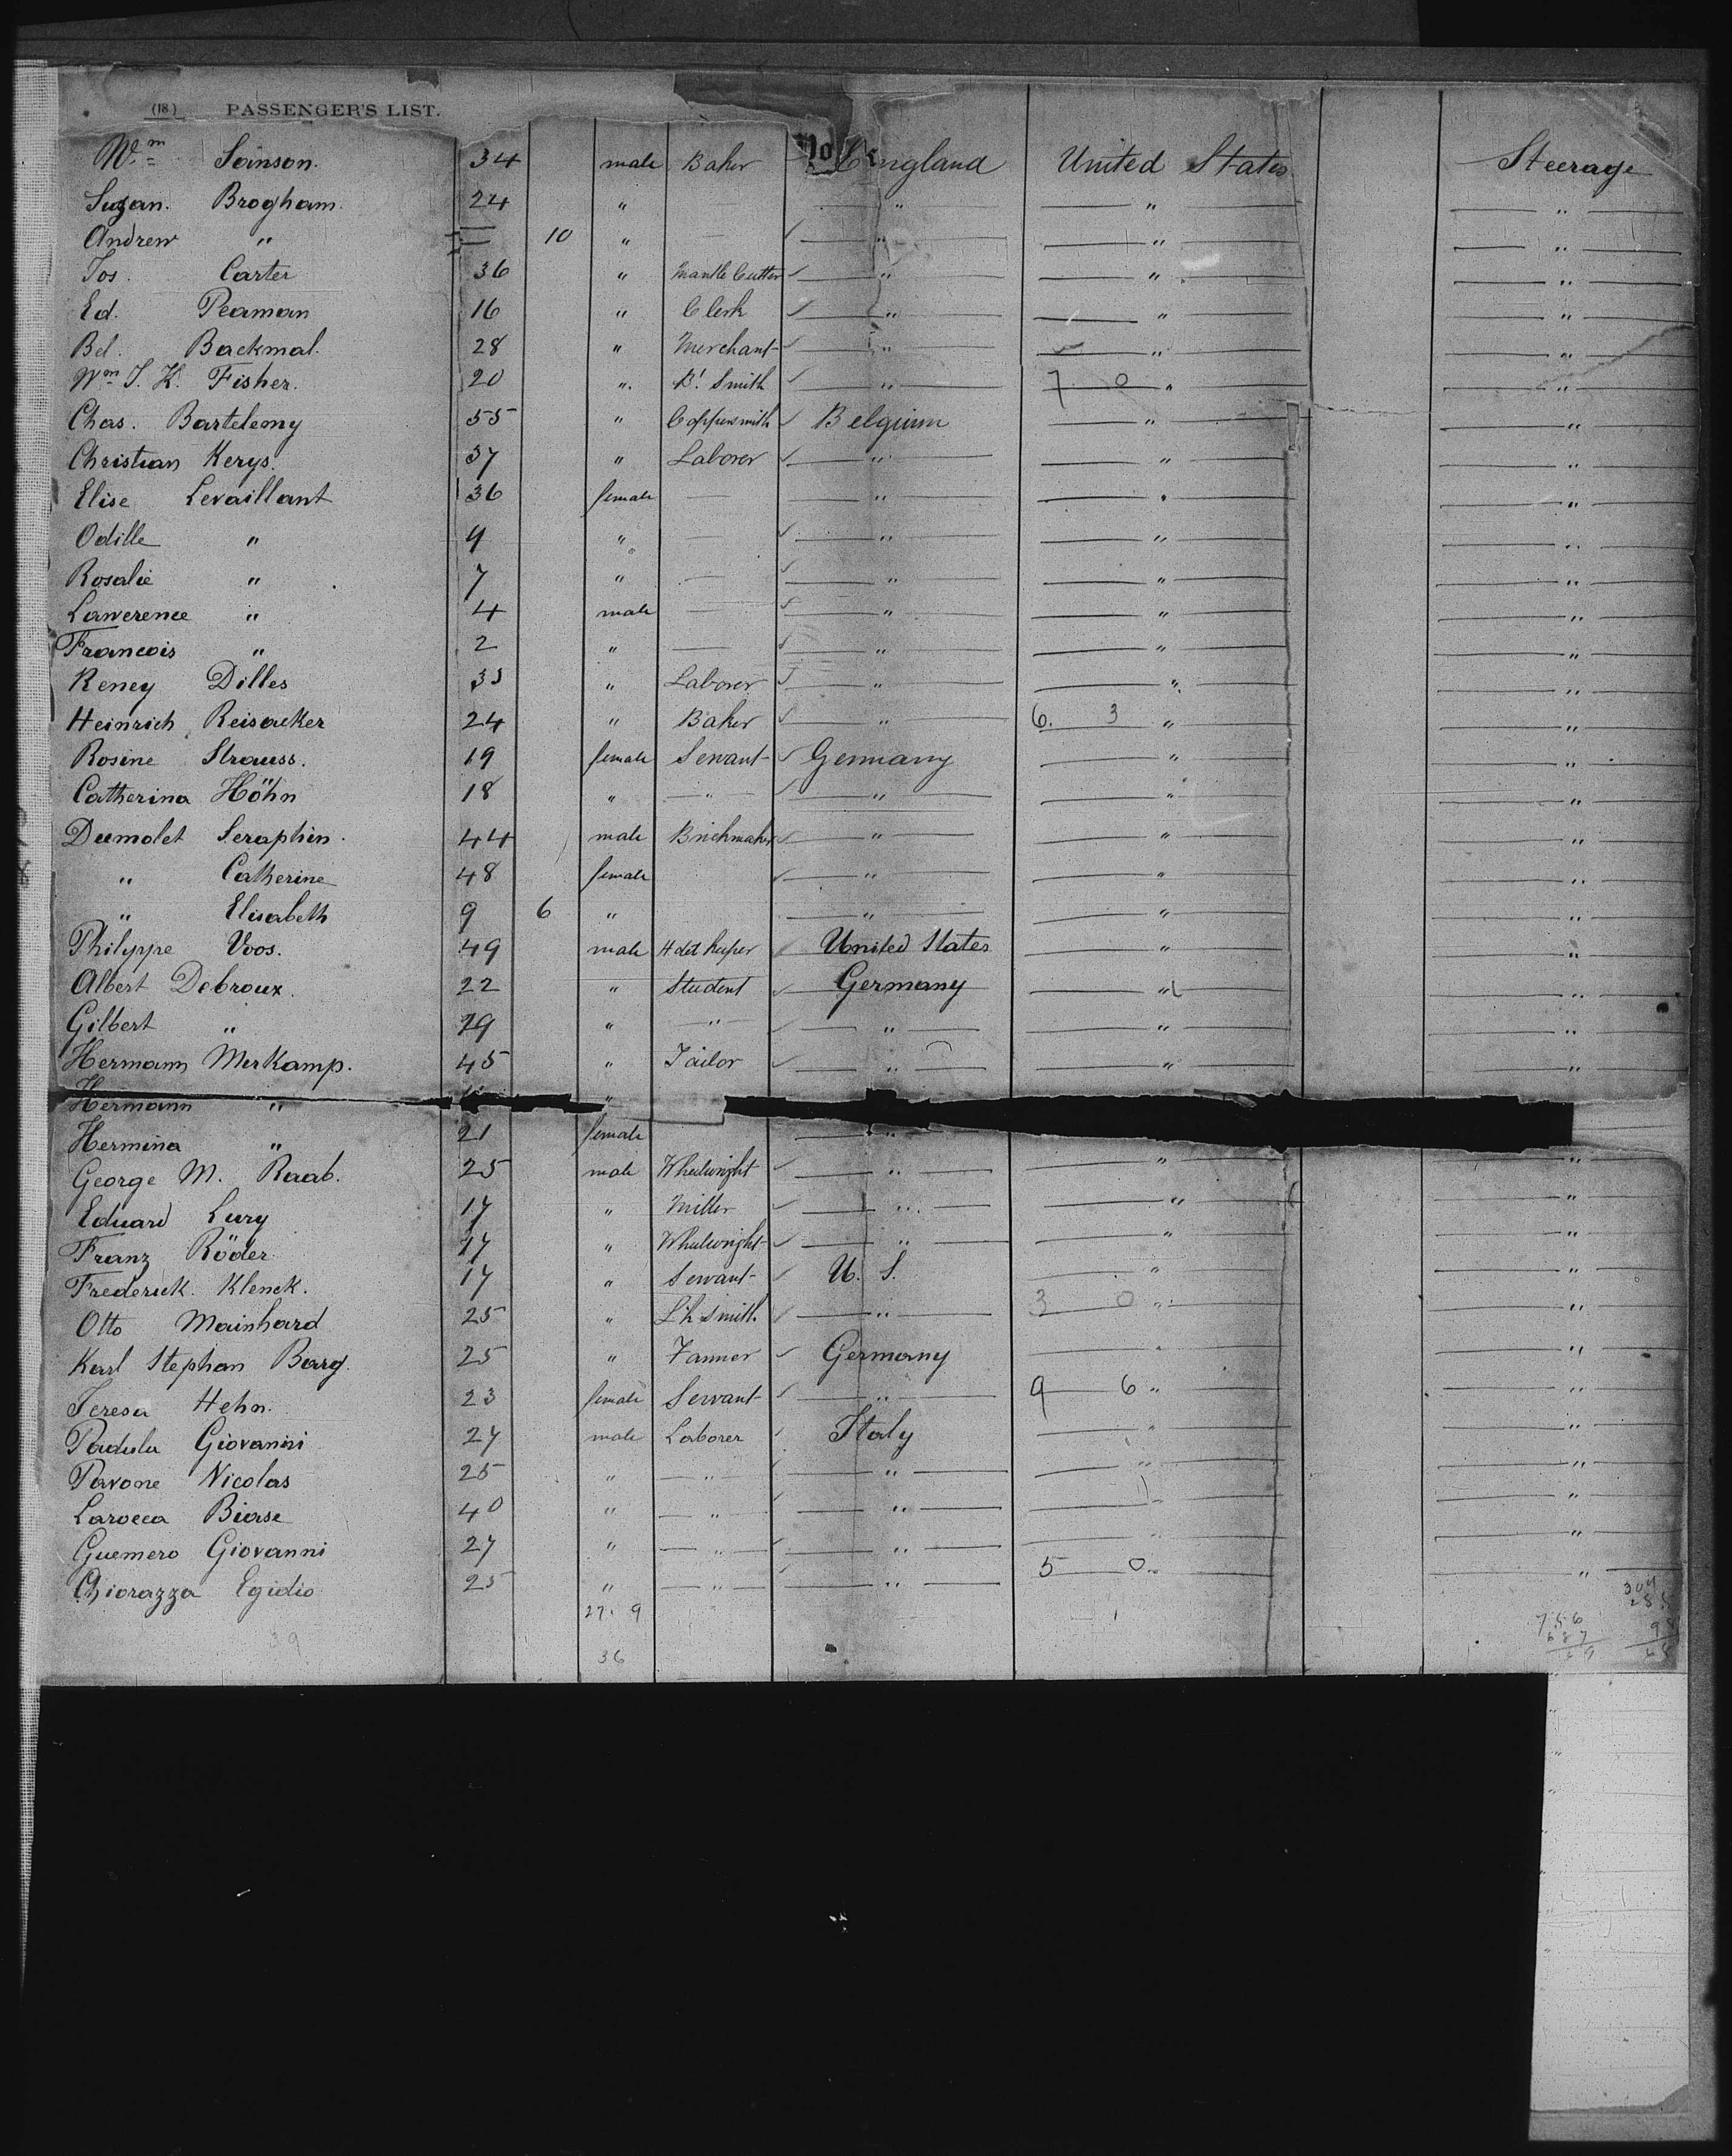 (18) PASSENGER'S LIST.
Wm Soinson. 34 male Baker England United States Steerage
Suzan. Brogham. 24 " " " "
Andrew " — 10 " — " " "
Jos. Carter 36 " Mantle Cutter " " "
Ed. Peaman 16 " Clerk " " "
Bel. Backmal. 28 " Merchant " " "
Wm J. K. Fisher. 20 " Bl. Smith " 7 0 " "
Chas. Bartelemy 55 " Coppersmith Belgium " "
Christian Kerys. 37 " Laborer " " "
Elise Levaillant 36 female — " " "
Odille " 9 " — " " "
Rosalie " 7 " — " " "
Lawerence " 4 male — " " "
Francois " 2 " — " " "
Reney Dilles 33 " Laborer " " "
Heinrich Reisacker 24 " Baker " 6. 3 " "
Rosine Strauss. 19 female Servant Germany " "
Catherina Höhn 18 " " " " "
Dumolet Seraphin. 44 male Brickmaker " " "
" Catherine 48 female " " "
" Elisabeth 9 6 " " " "
Philyppe Voos. 49 male Hotel keeper United States " "
Albert Debroux. 22 " Student Germany " "
Gilbert " 19 " " " " "
Hermann Merkamp. 45 " Tailor " " "
Hermann " "
Hermina " 21 female "
George M. Raab. 25 male Wheelwright " " "
Eduard Lury 17 " Miller " " "
Franz Röder 17 " Wheelwright " " "
Frederick. Klenck. 17 " Servant U. S. " "
Otto Mainhard 25 " Smith " 3 0 " "
Karl Stephan Barg. 25 " Tanner Germany " "
Teresa Hehn. 23 female Servant " 9 6 " "
Padula Giovanni 27 male Laborer Italy " "
Pavone Nicolas 25 " " " " "
Larocca Biase 40 " " " " "
Guemero Giovanni 27 " " " " "
Chiorazza Egidio 25 " " " 5 0 " "
27. 9
39 36
756
687